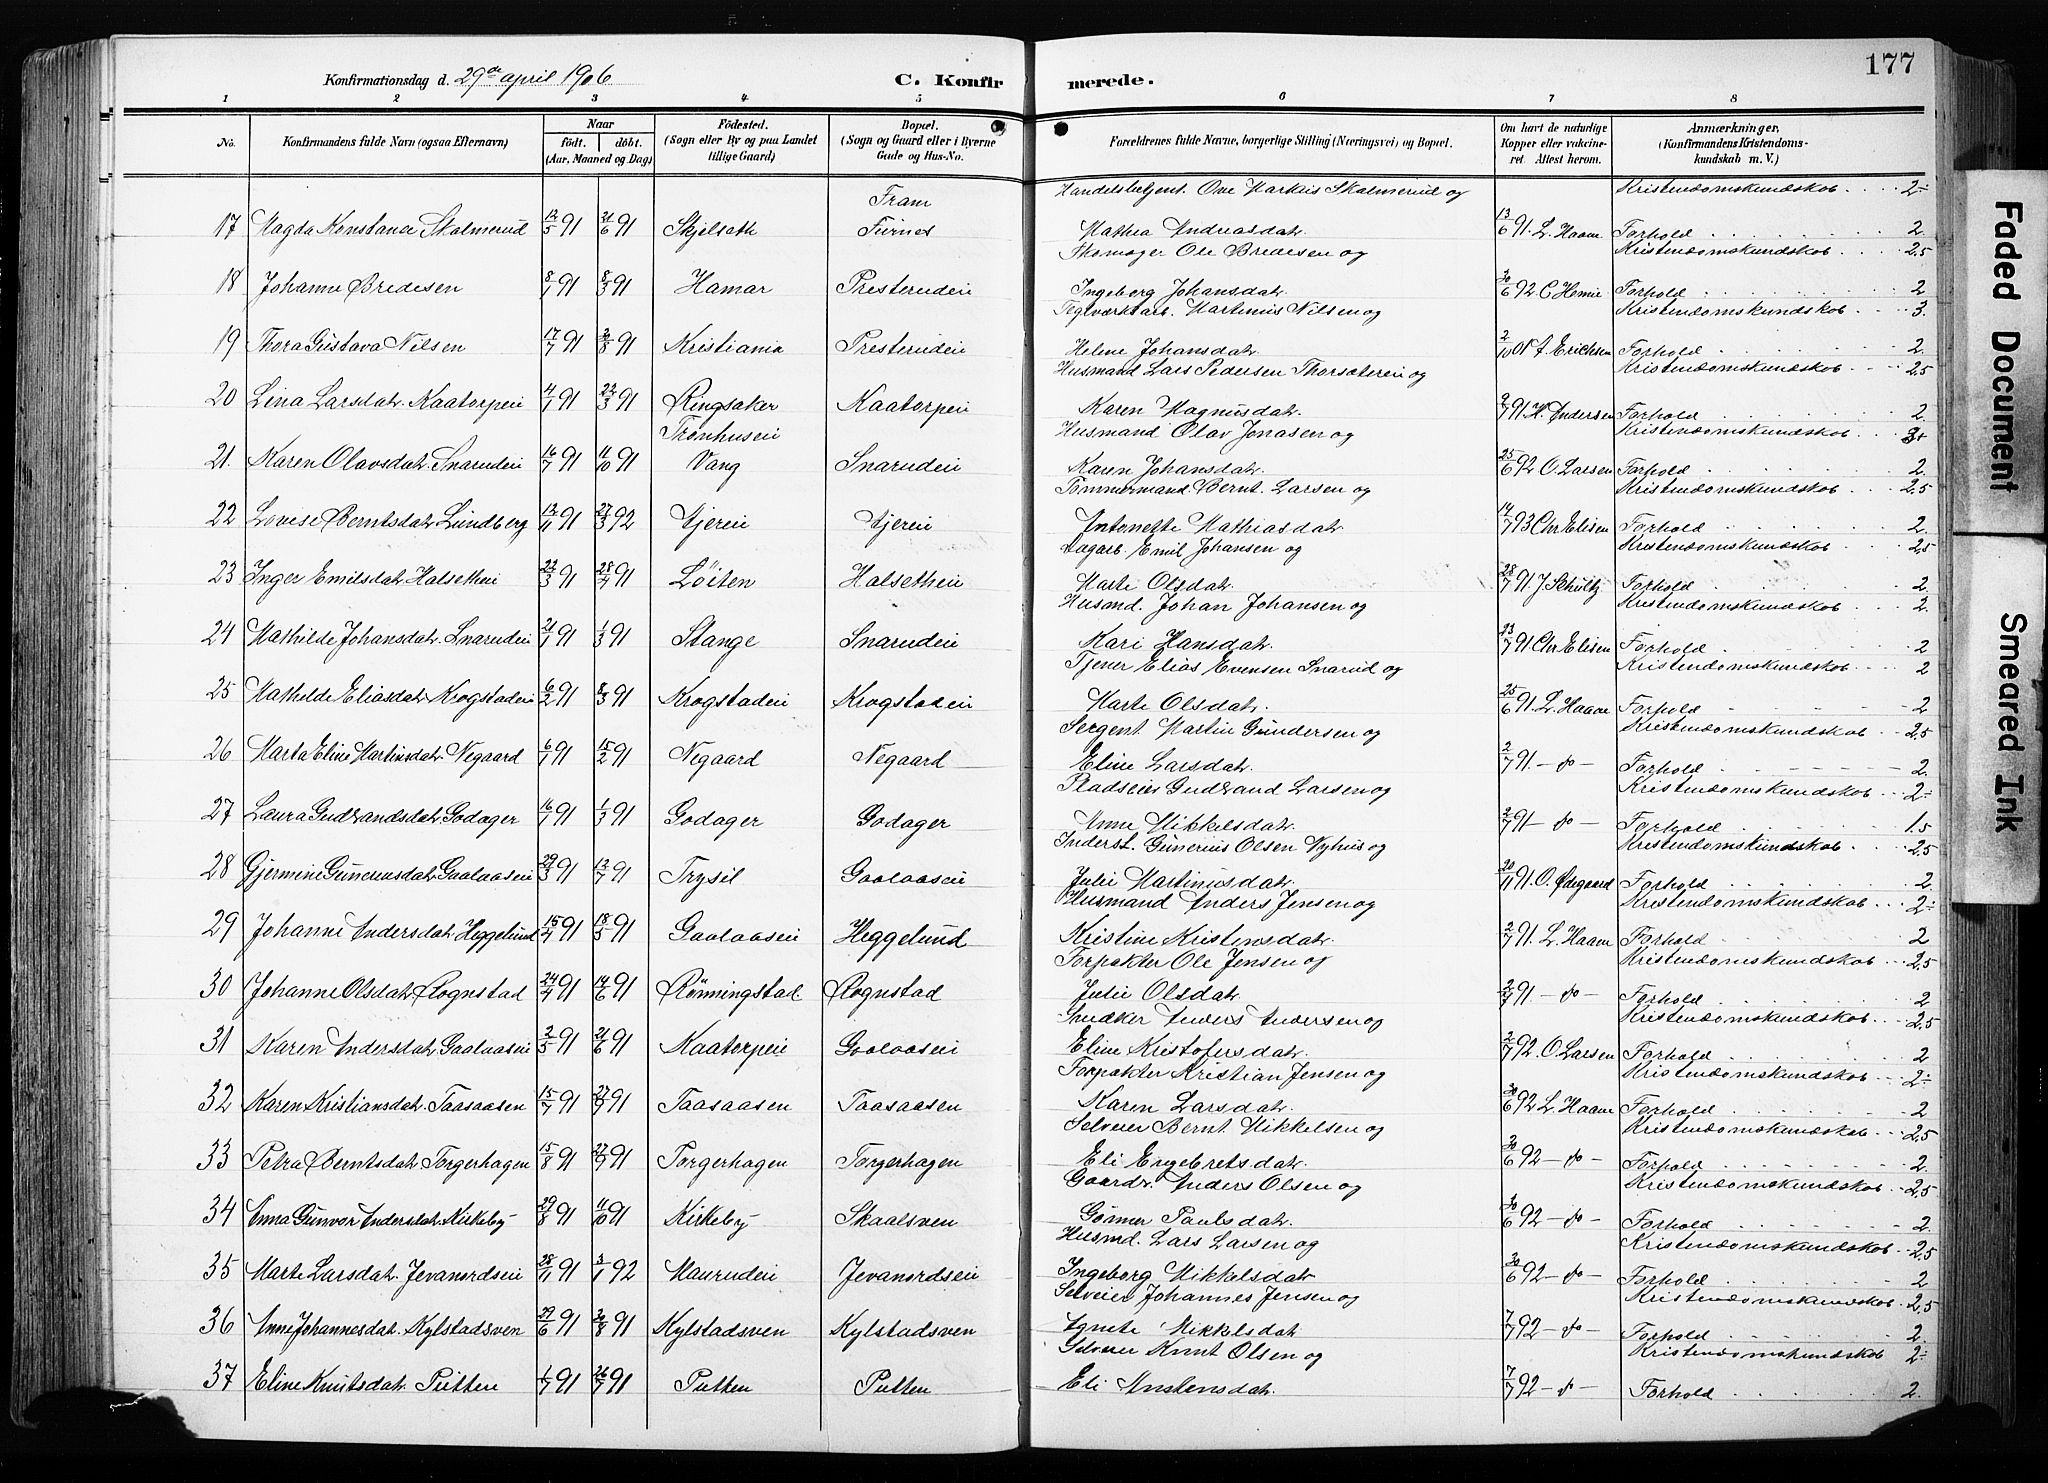 177
Konfirmationsdag d. 29de april 1906
C. Konfirmerede.
1 2 3 4 5 6 7 8
No. Konfirmandens fulde Navn (ogsaa Efternavn) Naar født. døbt. (Aar, Maaned og Dag) Fødested. (Sogn eller By og paa Landet tillige Gaard) Bopæl. (Sogn og Gaard eller i Byerne Gade og Hus-No. Forældrenes fulde Navne, borgerlige Stilling (Næringsvei) og Bopæl. Om havt de naturlige Kopper eller vakcineret. Attest herom. Anmærkninger, (Konfirmandens Kristendomskundskab m. V.)
Fram Handelsbetjent. Ove Markus Skalmerud og Kristendomskundskab 2-
17 Magda Konstance Skalmerud 12/5 91 21/6 91 Skjelseth Furnes Mathea Andreasdatr. 13/6 91. L. Haave Forhold 2
Skomager Ole Bredesen og Kristendomskundskab 2,5
18 Johanne Bredesen 8/1 91 8/3 91 Hamar Presterudeie Ingeborg Johansdatr. 30/6 92 Forhold 2
Teglværksarb. Martinus Nilsen og Kristendomskundskab 3.
19 Thora Gustava Nilsen 17/7 91 30/8 91 Kristiania Presterudeie Helene Johansdatr. 2/10 01 A. Erichsen Forhold 2.
Husmand Lars Pedersen Thorsætereie og Kristendomskundskab 2,5
20 Lina Larsdatr. Kaatorpeie 4/1 91 22/3 91 Ringsaker Kaatorpeie Karen Magnusdatr. 2/7 91. H. Andersen Forhold 2
Tronhuseie Husmand Olav Jonasen og Kristendomskundskab
21. Karen Olavsdatr. Snarudeie 16/7 91 11/10 91 Vang Snarudeie Karen Johansdatr. 25/6 92 O. Larsen Forhold 2.
Tømmermand. Bernt. Larsen og Kristendomskundskab 2,5
22 Lovise Berntsdatr. Lundberg 13/11 91 27/3 92 Ajereie Ajereie Antonette Mathiasdatr. 14/7 93 Chr Elisen Forhold 2.
Dagarb. Emil Johansen og Kristendomskundskab 2,5
23 Inger Emilsdatr. Halsetheie 22/3 91 28/4 91 Løiten Halsetheie Marte Olsdatr. 28/7 91. J. Schultz Forhold 2.
Husmd. Johan Johansen og Kristendomskundskab 2.
24 Mathilde Johansdatr. Snarudeie 21/1 91 1/3 91 Stange Snarudeie Kari Hansdatr. 23/7 91 Chr Elisen Forhold 2
Tjener Elias Evensen Snarud og Kristendomskundskab 2
25 Mathilde Eliasdatr. Krogstadeie 6/2 91 8/3 91 Krogstadeie Krogstadeie Marte Olsdatr. 25/6 91. L. Haave Forhold 2
Sergent Martin Gundersen og Kristendomskundskab 2,5
26 Marta Eline Martinsdatr. Negaard 6/1 91 15/2 91 Negaard Negaard Eline Larsdatr. 2/7 91. - do - Forhold 2.
Pladseier Gudbrand Larsen og Kristendomskundskab 2-
27 Laura Gudbrandsdatr. Godager 16/1 91 1/3 91 Godager Godager Anne Mikkelsdatr. 2/7 91 - do - Forhold 1.5
Inderst. Gunerius Olsen Nyhus og Kristendomskundskab 2,5
28 Gjermine Guneriusdatr. Gaalaaseie 29/3 91 12/7 91 Trysil Gaalaaseie Julie Martinusdatr. 20/11 91. O. Ødegaard Forhold 2.
Husmand Anders Jensen og Kristendomskundskab 2-
29 Johanne Andersdatr. Heggelund 15/4 91 18/5 91 Gaalaaseie Heggelund Kristine Kristensdatr. 2/7 91. L. Haave Forhold 2
Forpakter Ole Jensen og Kristendomskundskab 2,5
30 Johanne Olsdatr. Rognstad 24/4 91 14/6 91 Rønningstad Rognstad Julie Olsdatr. 2/7 91. - do - Forhold 2
Snedker Anders Andersen og Kristendomskundskab 2,5
31 Karen Andersdatr. Gaalaaseie 2/5 91 21/6 91 Kaatorpeie Gaalaaseie Eline Kristofersdatr. 2/7 92. O. Larsen Forhold 2
Forpakter Kristian Jensen og Kristendomskundskab 2-
32 Karen Kristiansdatr. Taasaasen 15/7 91 27/9 91 Taasaasen Taasaasen Karen Larsdatr. 30/6 92 L. Haave Forhold 2
Selveier Bernt Mikkelsen og Kristendomskundskab 2,5
33 Petra Berntsdatr. Torgerhagen 15/8 91 27/9 91 Torgerhagen Torgerhagen Eli Engebretsdatr. 30/6 92 - do - Forhold 2.
Gaardr. Anders Olsen og Kristendomskundskab 2,5
34 Anna Gunvor Andersdatr. Kirkeby 29/8 91 11/10 91 Kirkeby Skaalsven Gønner Paulsdatr. 30/6 92 - do - Forhold 2.
Husmd. Lars Larsen og Kristendomskundskab 2,5
35 Marte Larsdatr. Jevanordseie 28/11 91 3/1 92 Maurudeie Jevanordseie Ingeborg Mikkelsdatr. 30/6 92 - do - Forhold 2
Selveier Johannes Jensen og Kristendomskundskab 2,5
36 Anne Johannesdatr. Kylstadsven 29/6 91 30/8 91 Kylstadsven Kylstadsven Agnete Mikkelsdatr. 7/7 92 - do - Forhold 2.
Selveier Knut Olsen og Kristendomskundskab 2-
37 Eline Knutsdatr. Putten 1/7 91 26/7 91 Putten Putten Eli Anstensdatr. 7/7 92 - do - Forhold 2.
Faded Document
Smeared Ink